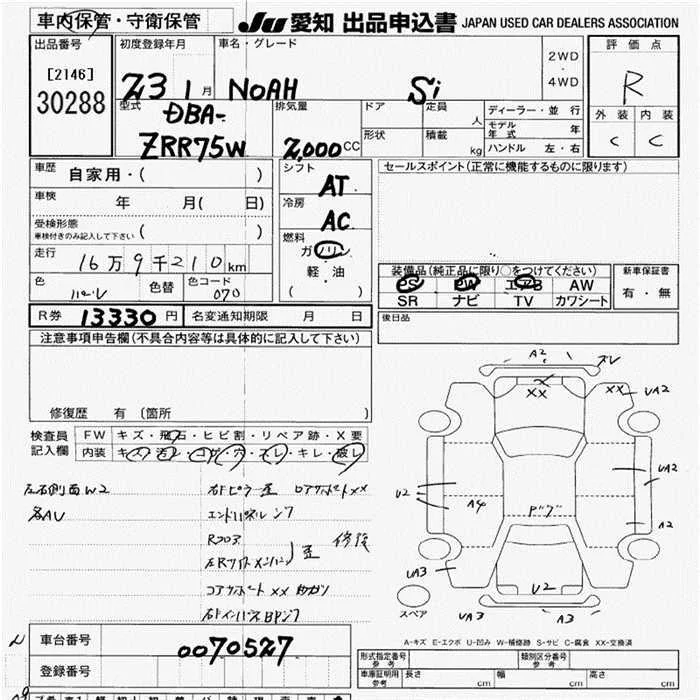 車内保管・守衛保管
JU 愛知 出品申込書 JAPAN USED CAR DEALERS ASSOCIATION
出品番号
[2146]
30288
初度登録年月
23 1 月
車名・グレード
NOAH Si
2WD
・
4WD
評価点
R
外装 内装
C C
型式
DBA-
ZRR75W
排気量
2,000 CC
ドア
定員
人
形状
積載
kg
ディーラー・並行
モデル年式 年
ハンドル 左・右
車歴
自家用・( )
車検
年 月( 日)
受検形態
車検付きのみ記入して下さい ( )
走行
16万9千210km
色
パール
色替
色コード
070
シフト
AT
冷房
AC
燃料
ガソリン
軽・油
( )
セールスポイント(正常に機能するものに限ります)
装備品(純正品に限り○をつけてください)
PS PW エアB AW
SR ナビ TV カワシート
新車保証書
有・無
後日品
R券 13330 円
名変通知期限 月 日
注意事項申告欄(不具合内容等は具体的に記入して下さい)
修復歴 有 (箇所 )
検査員
記入欄
FW キズ・飛石・ヒビ割・リペア跡・X要
内装 キズ・汚レ・コゲ・穴・スレ・キレ・破レ
左右側面W2
各AU
右Fピラー歪
エンドパネルシワ
Rフロア
歪 修後
A2
XX
XX
UA2
U2
A4
UA2
A2
UA3
U2
UA3
A3
スペア
A-キズ E-エクボ U-凹み W-補修跡 S-サビ C-腐食 XX-交換済
車台番号
0070527
登録番号
形式指定番号
参考
類別区分番号
参考
車庫証明用
参考
長さ cm
幅 cm
高さ cm